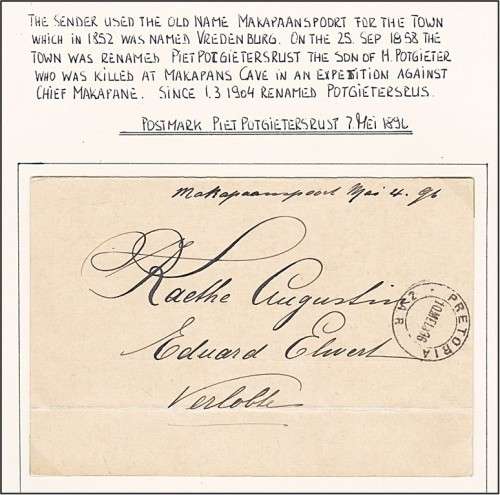 THE SENDER USED THE OLD NAME MAKAPAANSPOORT FOR THE TOWN
WHICH IN 1852 WAS NAMED VREDENBURG. ON THE 25. SEP 1858 THE
TOWN WAS RENAMED PIETPOTGIETERSRUST THE SON OF H. POTGIETER
WHO WAS KILLED AT MAKAPANS CAVE IN AN EXPEDITION AGAINST
CHIEF MAKAPANE. SINCE 1.3 1904 RENAMED POTGIETERSRUS.
POSTMARK PIET POTGIETERSRUST 7. MEI 1896
Makapaanspoort Mai 4. 96
Kaethe Augustin
Eduard Elwert
Verlobte
PRETORIA
10 MEI 96
Z.A.R.